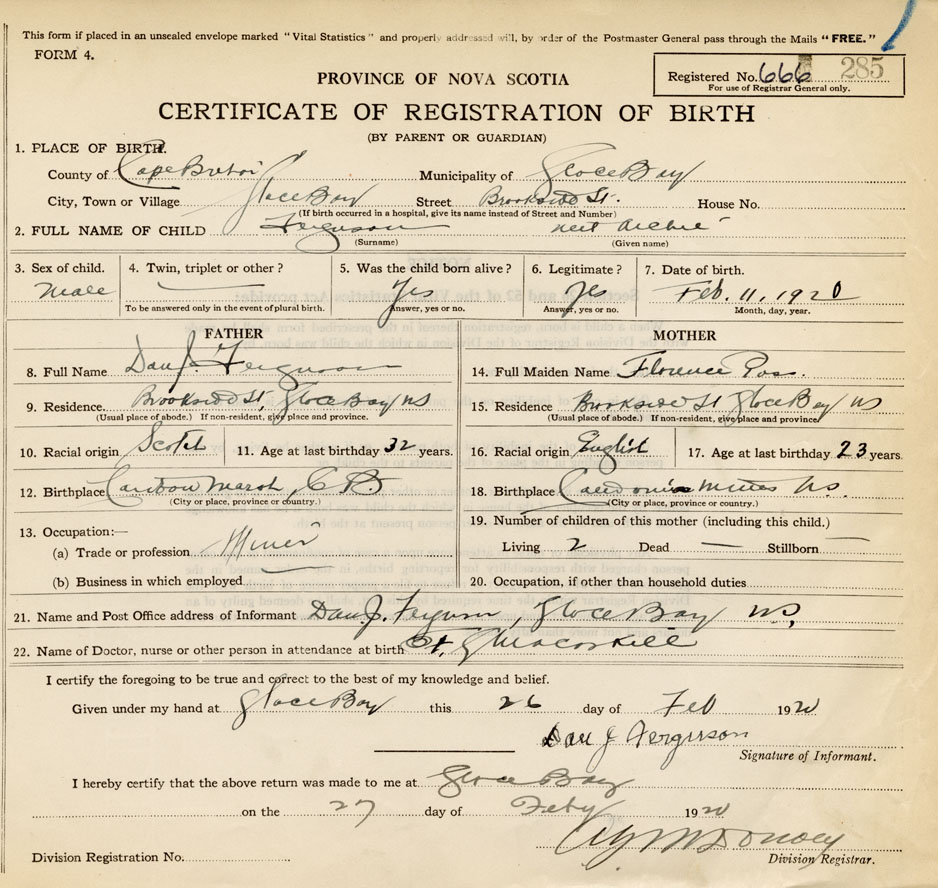 This form if placed in an unsealed envelope marked "Vital Statistics" and properly addressed will, by order of the Postmaster General pass through the Mails "FREE."
FORM 4.
Registered No. 666 285
For use of Registrar General only.
PROVINCE OF NOVA SCOTIA
CERTIFICATE OF REGISTRATION OF BIRTH
(BY PARENT OR GUARDIAN)
1. PLACE OF BIRTH.
County of Cape Breton Municipality of Glace Bay
City, Town or Village Glace Bay Street Brookside St. House No.
(If birth occurred in a hospital, give its name instead of Street and Number)
2. FULL NAME OF CHILD Ferguson Neil Archie
(Surname) (Given name)
3. Sex of child. 4. Twin, triplet or other? 5. Was the child born alive? 6. Legitimate? 7. Date of birth.
Male Yes Yes Feb. 11, 1920
To be answered only in the event of plural birth. Answer, yes or no. Answer, yes or no. Month, day, year.
FATHER MOTHER
8. Full Name Dan J. Ferguson 14. Full Maiden Name Florence
9. Residence. Brookside St, Glace Bay NS 15. Residence Brookside St Glace Bay NS
(Usual place of abode.) If non-resident, give place and province. (Usual place of abode.) If non-resident, give place and province.
10. Racial origin Scotch 11. Age at last birthday 32 years. 16. Racial origin English 17. Age at last birthday 23 years.
12. Birthplace Caribou Marsh, C B 18. Birthplace Caledonia Mines N.S.
(City or place, province or country.) (City or place, province or country.)
13. Occupation:— 19. Number of children of this mother (including this child.)
(a) Trade or profession Miner Living 2 Dead — Stillborn —
(b) Business in which employed 20. Occupation, if other than household duties
21. Name and Post Office address of Informant Dan J. Ferguson, Glace Bay NS,
22. Name of Doctor, nurse or other person in attendance at birth
I certify the foregoing to be true and correct to the best of my knowledge and belief.
Given under my hand at Glace Bay this 26 day of Feb 1920
Dan J Fergusson
Signature of Informant.
I hereby certify that the above return was made to me at Glace Bay
on the 27 day of Feby 1920
Division Registration No. Division Registrar.